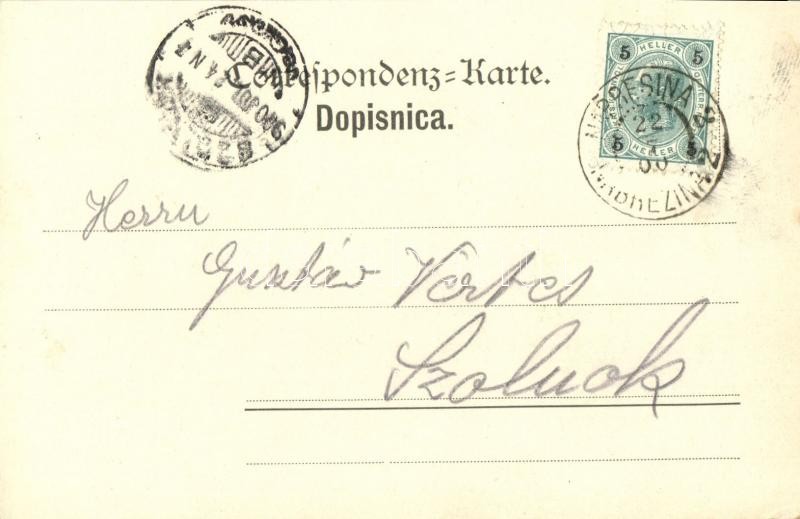 Correspondenz=Karte.
Dopisnica.
5 HELLER 5
5 HELLER 5
NABRESINA
22
00
NABREZINA 2
Herrn
Gusztáv Vértes
Szolnok